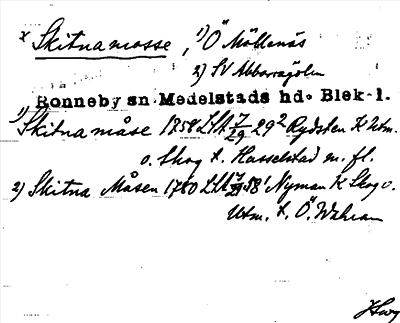 x Skitnamosse, 1) Ö Möllenäs
2) SV Abborragölen
Ronneby sn Medelstads hd. Blek. l.
1) Skitna måse 1758 LSA 29² Rydsten K Utm.
o. Skog t. Hasselstad m. fl.
2) Skitna Måsen 1780 LSA 58¹ Nyman K Skog o.
Utm. t. Ö.